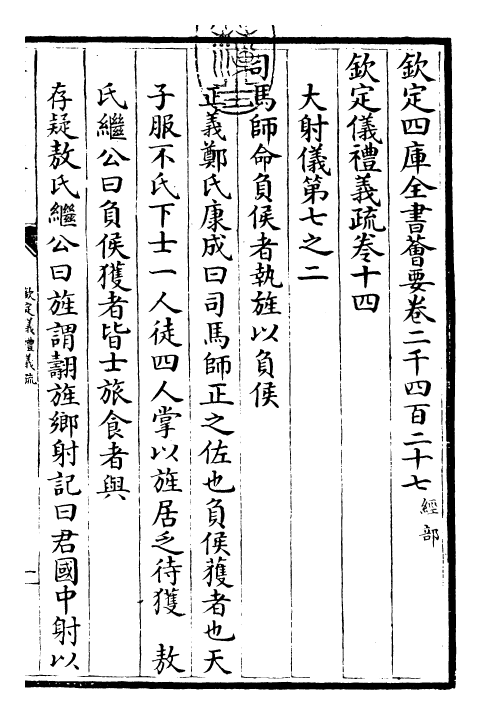 欽定四庫全書薈要卷二千四百二十七 經部
欽定儀禮義疏卷十四
大射儀第七之二
司馬師命負侯者執旌以負侯
正義鄭氏康成曰司馬師正之佐也負侯獲者也天
子服不氏下士一人徒四人掌以旌居乏待獲 敖
氏繼公曰負侯獲者皆士旅食者與
存疑敖氏繼公曰旌謂翿旌鄉射記曰君國中射以
欽定儀禮義疏
一